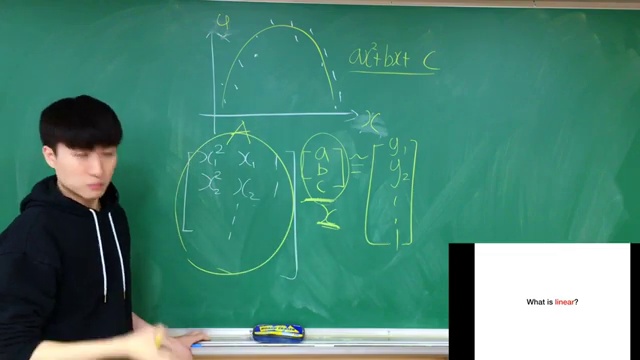 y
ax²+bx+c
x
A
x₁² x₁ 1
x₂² x₂ 1
a
b
c
≈
y₁
y₂
x
What is linear?